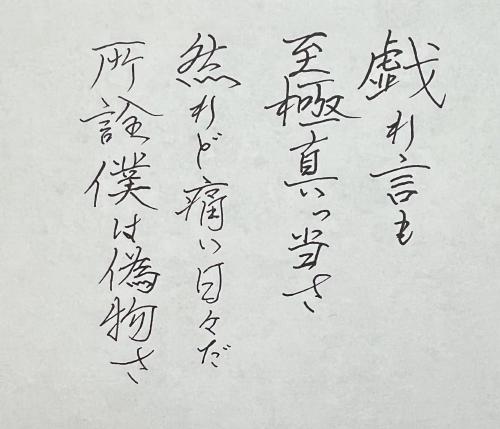 戯れ言も
至極真っ当さ
然れど痛い日々だ
所詮僕は偽物さ